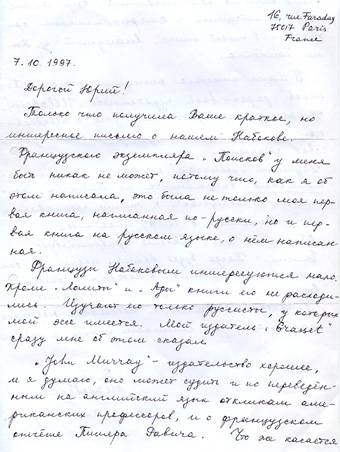 16, rue Faraday
75017 Paris
France
7.10.1997.
Дорогой Юрий!
Только что получила Ваше краткое, но
интересное письмо о нашем Набокове.
Французского экземпляра „Поисков" у меня
быть никак не может, потому что, как я об
этом написала, это была не только моя пер-
вая книга, написанная по-русски, но и пер-
вая книга на русском языке, о нём написан-
ная.
Французы Набоковым интересуются мало.
Кроме „Лолиты" и „Ады" книги его не расходи-
лись. Изучают его только русисты, у которых
мой эссе имеется. Мой издатель
сразу мне об этом сказал
„John Murray" - издательство хорошее,
и я думаю, оно может судить и по переведён-
ным на английский язык откликам аме-
риканских профессоров, и о французском
отчёте Пьера Что же касается